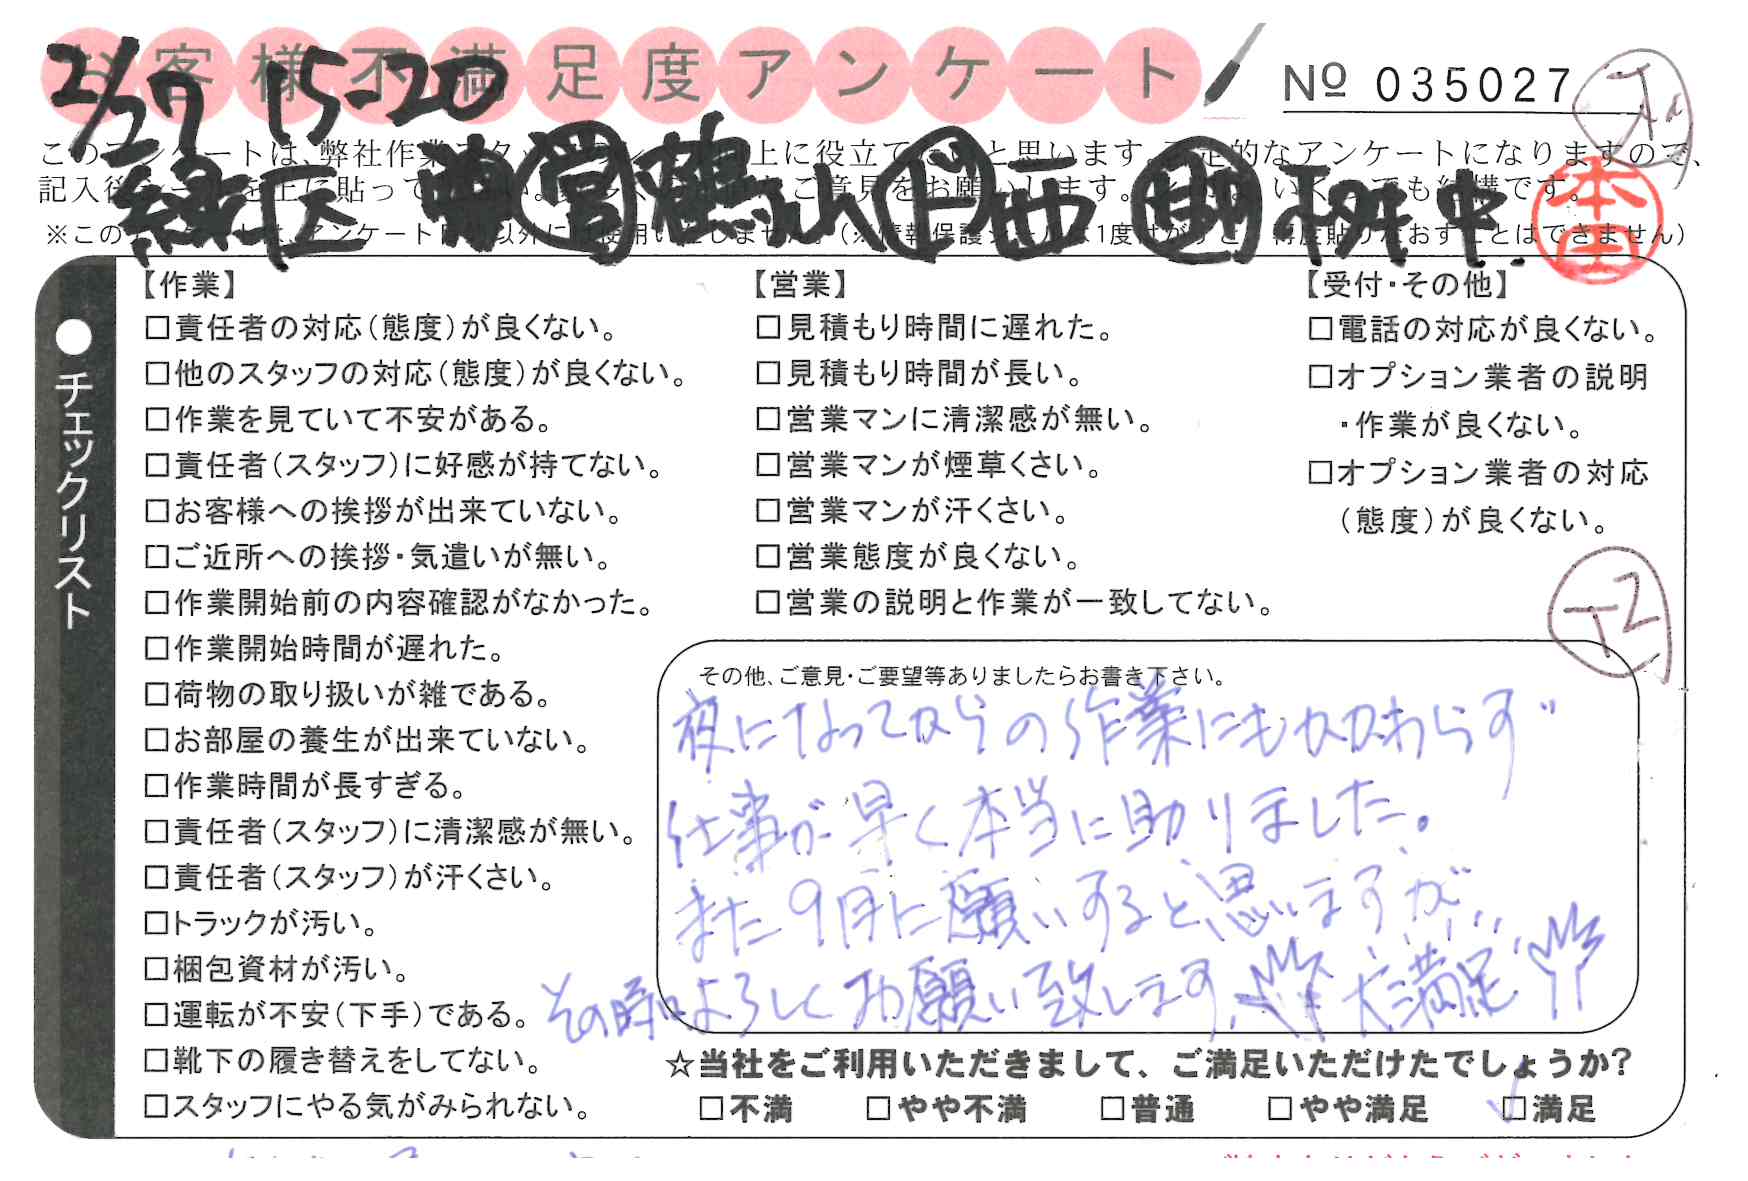 お客様不満足度アンケート
2/27 15-20
№ 035027
このアンケートは、弊社作業スタッフ 上に役立て と思います。 定的なアンケートになりますので、
記入後シールを上に貼って ご意見をお願いします。 いくつでも結構です。
緑区 営 鶴山 ド 西 助 中
本田
※このアンケートは、アンケート目的以外には使用いたしません。(※情報保護シールは1度はがすと、再度貼りなおすことはできません)
●チェックリスト
【作業】
□責任者の対応(態度)が良くない。
□他のスタッフの対応(態度)が良くない。
□作業を見ていて不安がある。
□責任者(スタッフ)に好感が持てない。
□お客様への挨拶が出来ていない。
□ご近所への挨拶・気遣いが無い。
□作業開始前の内容確認がなかった。
□作業開始時間が遅れた。
□荷物の取り扱いが雑である。
□お部屋の養生が出来ていない。
□作業時間が長すぎる。
□責任者(スタッフ)に清潔感が無い。
□責任者(スタッフ)が汗くさい。
□トラックが汚い。
□梱包資材が汚い。
□運転が不安(下手)である。
□靴下の履き替えをしてない。
□スタッフにやる気がみられない。
【営業】
□見積もり時間に遅れた。
□見積もり時間が長い。
□営業マンに清潔感が無い。
□営業マンが煙草くさい。
□営業マンが汗くさい。
□営業態度が良くない。
□営業の説明と作業が一致してない。
【受付・その他】
□電話の対応が良くない。
□オプション業者の説明
・作業が良くない。
□オプション業者の対応
(態度)が良くない。
その他、ご意見・ご要望等ありましたらお書き下さい。
夜になってからの作業にもかかわらず
仕事が早く本当に助りました。
また9月に願いすると思いますが...
その時はよろしくお願い致します。大満足
☆当社をご利用いただきまして、ご満足いただけたでしょうか?
□不満 □やや不満 □普通 □やや満足 □満足